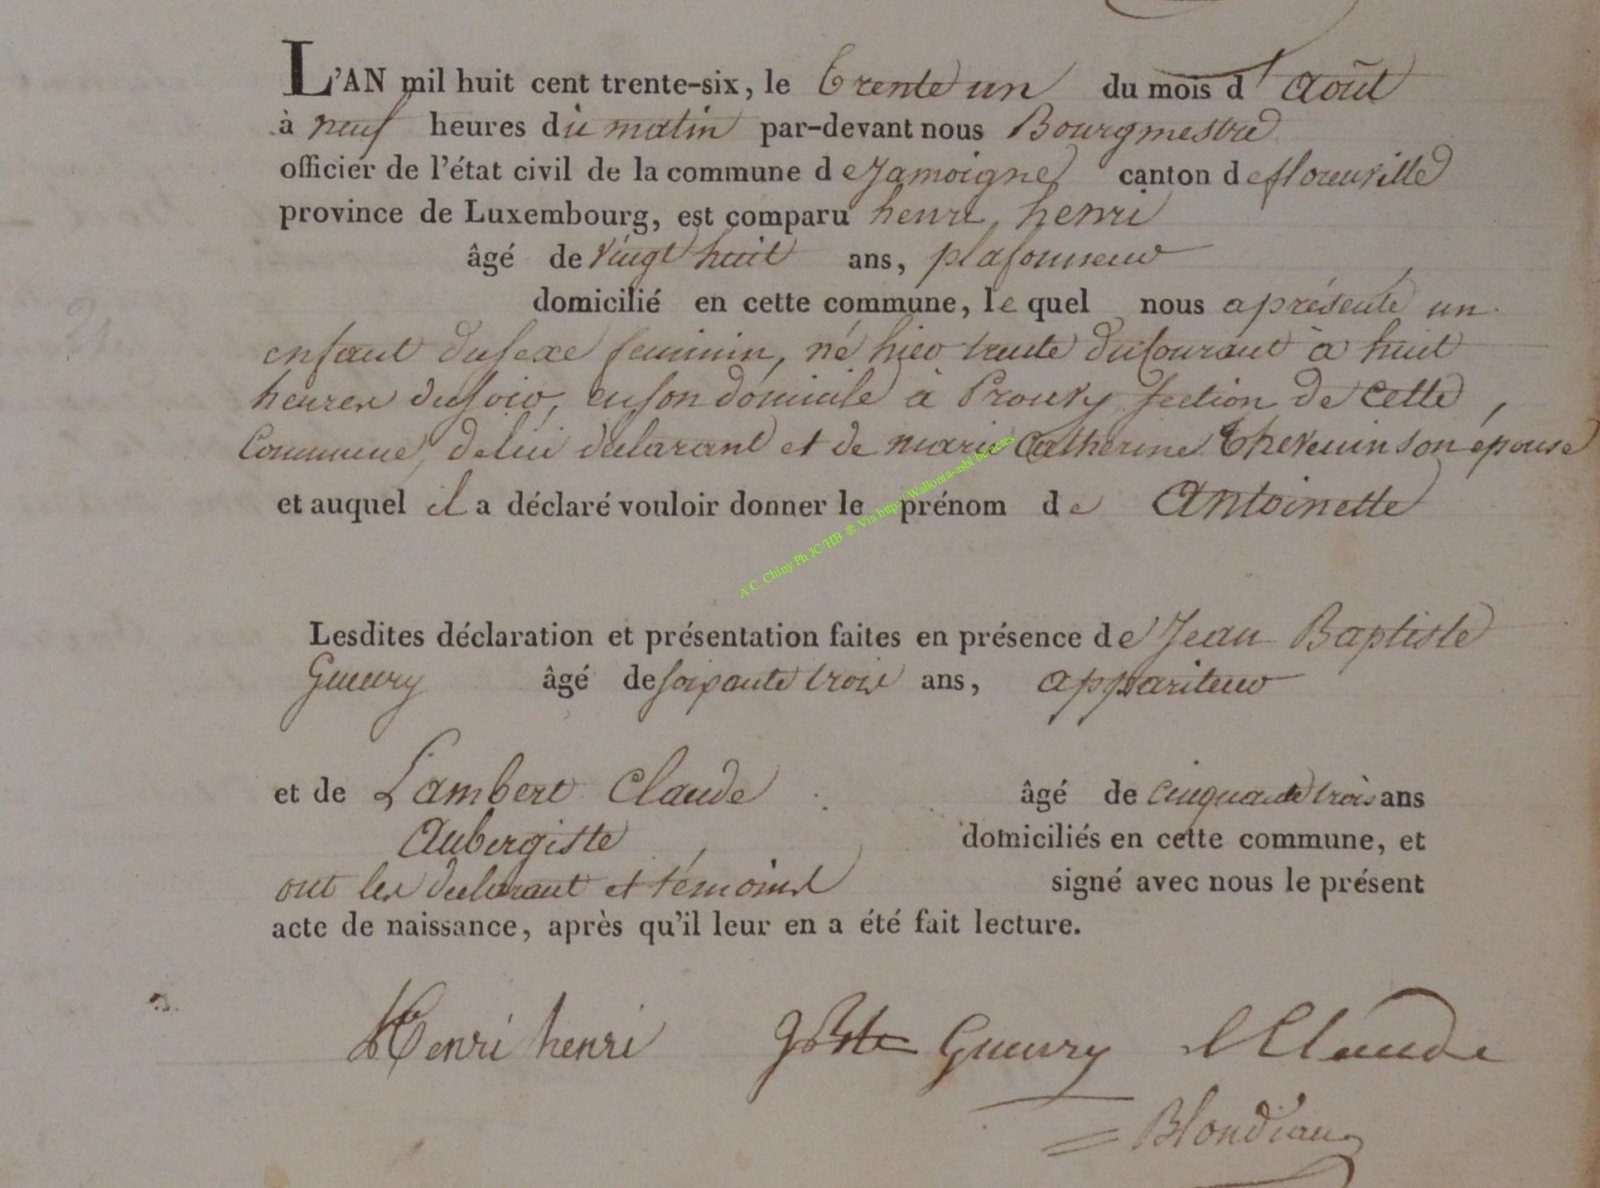 L'AN mil huit cent trente-six, le trente un du mois d'Août
à neuf heures du matin par-devant nous Bourgmestre
officier de l'état civil de la commune de Jamoigne canton de florenville
province de Luxembourg, est comparu henri henri
âgé de vingt huit ans, plafonneur
domicilié en cette commune, le quel nous a présenté un
enfant du sexe feminin, né hier trente du courant à huit
heures du soir, en son domicile à Prouvy section de cette
Commune, de lui déclarant et de marie Catherine thevenin son épouse
et auquel il a déclaré vouloir donner le prénom de Antoinette
A.C. Chiny Ph JC/HB ® Via Wallonia-asbl.be/actes
Lesdites déclaration et présentation faites en présence de Jean Baptiste
Gueury âgé de soixante trois ans, appariteur
et de Lambert Claude âgé de cinquante trois ans
Aubergiste domiciliés en cette commune, et
ont les déclarant et témoins signé avec nous le présent
acte de naissance, après qu'il leur en a été fait lecture.
Henri henri JBste Gueury L Claude
Blondiau